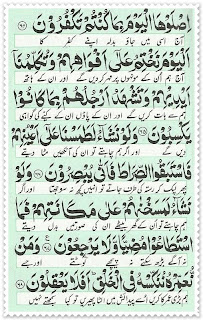 اِصْلَوْهَا الْيَوْمَ بِمَا كُنْتُمْ تَكْفُرُوْنَ ﴿۶۴﴾
آج اسی میں جاؤ بدلہ اپنے کفر کا
اَلْيَوْمَ نَخْتِمُ عَلٰۤى اَفْوَاهِهِمْ وَتُكَلِّمُنَاۤ
آج ہم ان کے مونہوں پر مہر کر دیں گے اور ان کے ہاتھ
اَيْدِيْهِمْ وَتَشْهَدُ اَرْجُلُهُمْ بِمَا كَانُوْا
ہم سے بات کریں گے اور ان کے پاؤں
يَكْسِبُوْنَ ﴿۶۵﴾ وَلَوْ نَشَآءُ لَطَمَسْنَا عَلٰۤى اَعْيُنِهِمْ
اور اگر ہم چاہتے تو ان کی آنکھیں مٹا دیتے
فَاسْتَبَقُوا الصِّرَاطَ فَاَنّٰى يُبْصِرُوْنَ ﴿۶۶﴾ وَلَوْ
پھر لپک کر رستہ کی طرف جاتے تو انہیں کچھ نہ سوجھتا اور اگر
نَشَآءُ لَمَسَخْنٰهُمْ عَلٰى مَكَانَتِهِمْ فَمَا
ہم چاہتے تو ان کے گھر بیٹھے ان کی صورتیں بدل دیتے
اسْتَطَاعُوْا مُضِيًّا وَّلَا يَرْجِعُوْنَ ﴿۶۷﴾ وَمَنْ
نہ آگے بڑھ سکتے نہ پیچھے لوٹتے اور جسے
نُّعَمِّرْهُ نُنَكِّسْهُ فِى الْخَلْقِ اَفَلَا يَعْقِلُوْنَ ﴿۶۸﴾
ہم بڑی عمر کا کریں اسے پیدائش میں الٹا پھیریں تو کیا سمجھتے نہیں